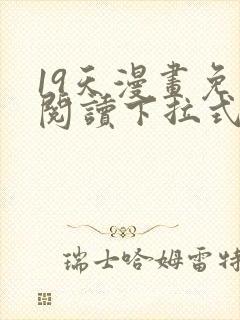 19天漫畫免
閱讀下拉式
瑞士哈姆雷特